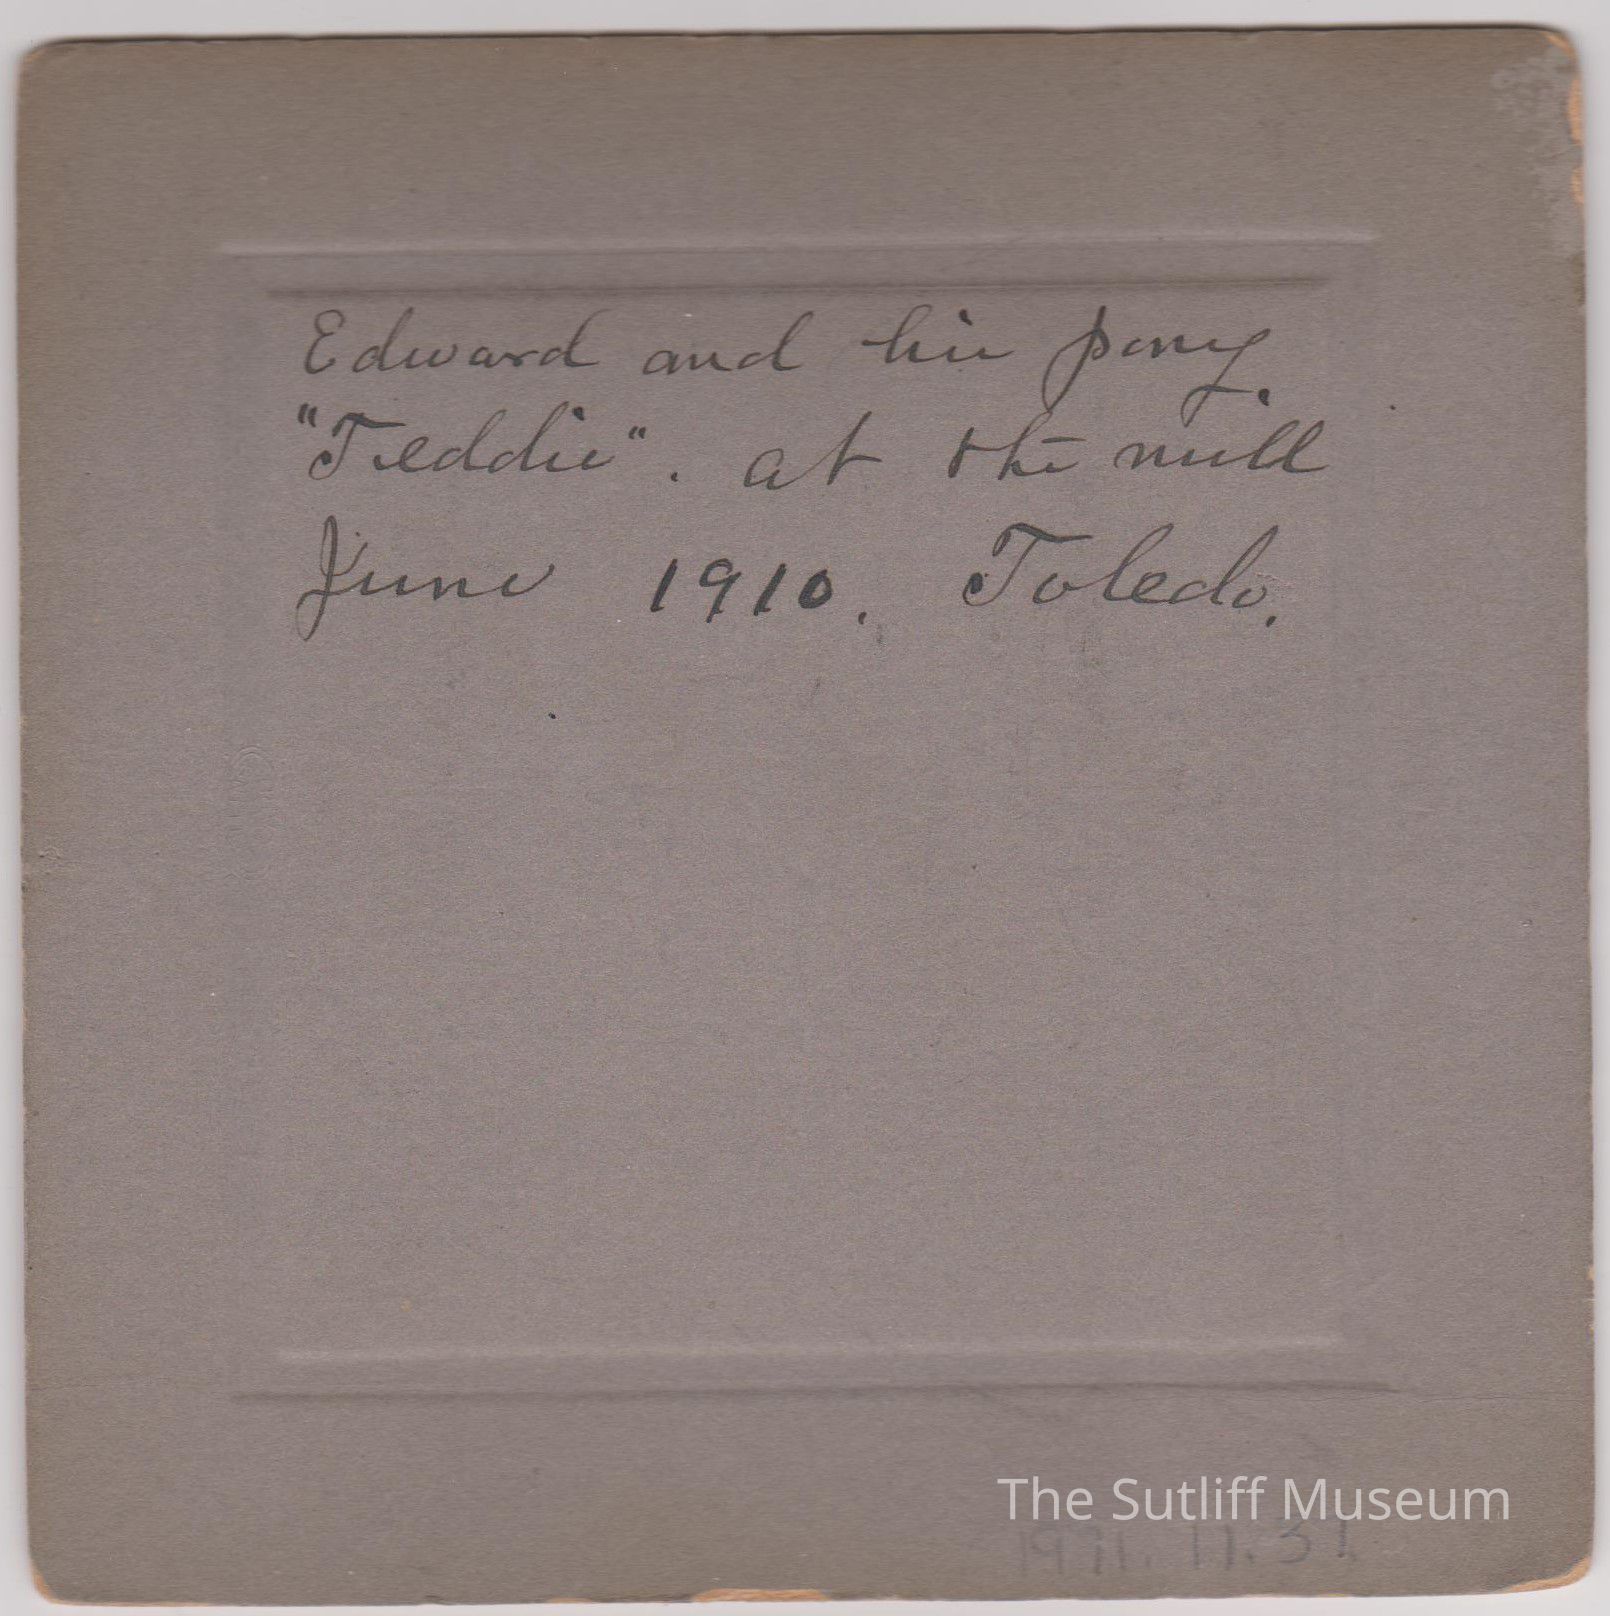 Edward and his pony.
"Teddie". at the mill
June 1910. Toledo.
The Sutliff Museum
1971.11.31